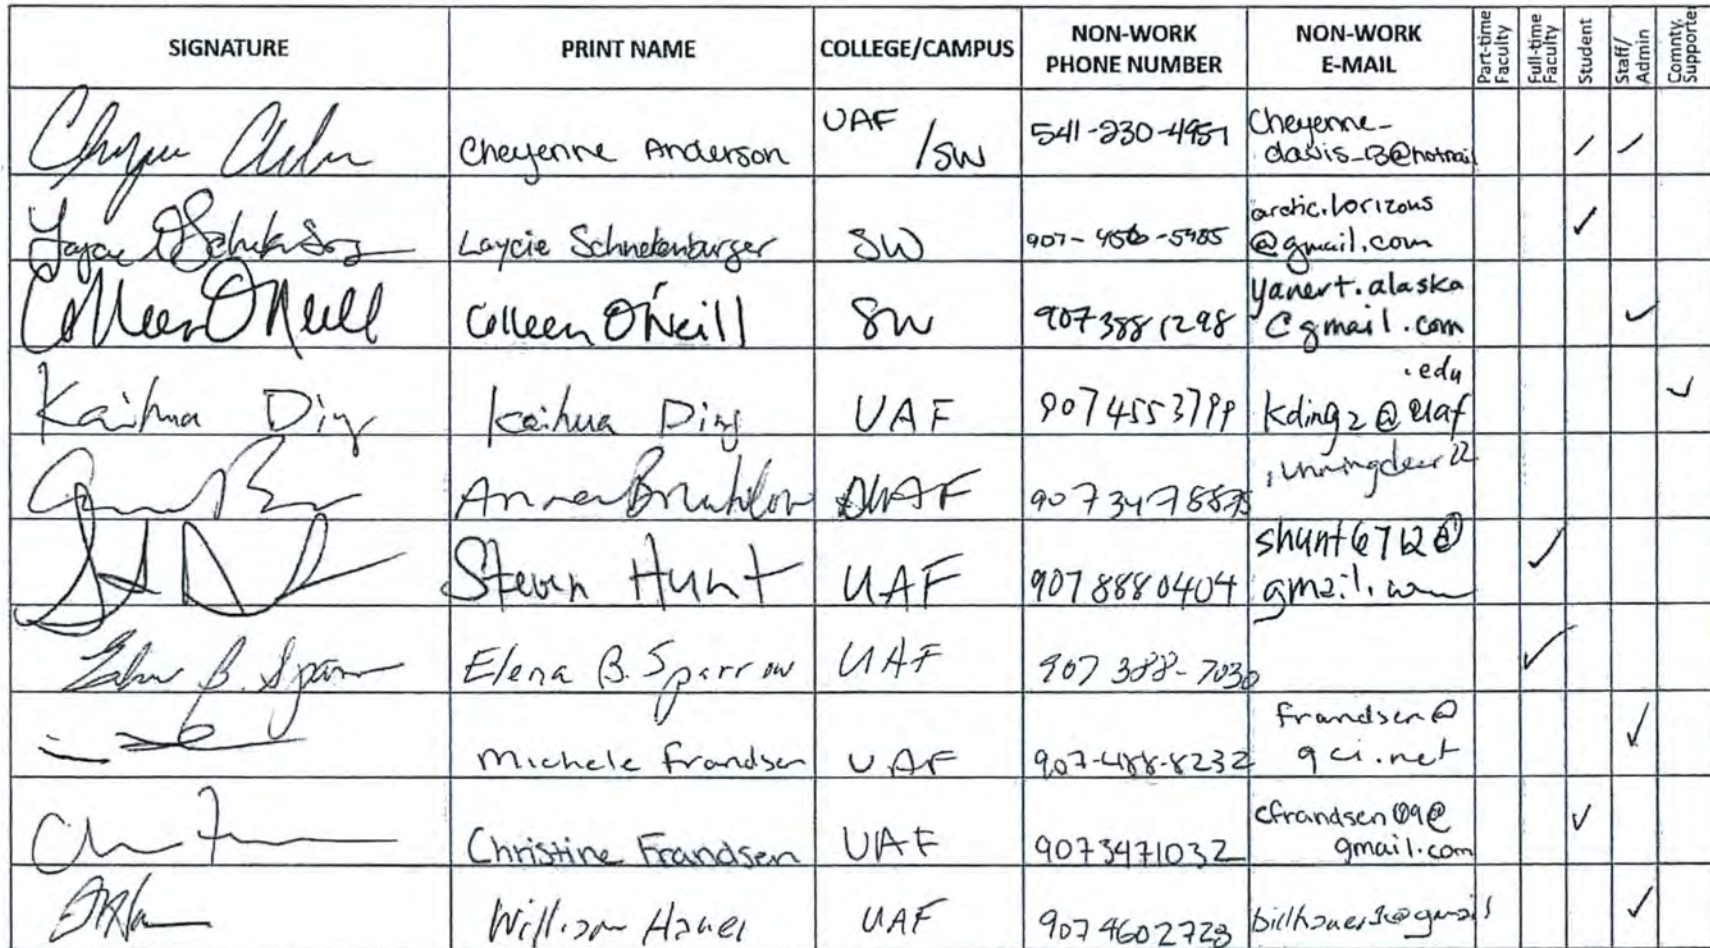 SIGNATURE PRINT NAME COLLEGE/CAMPUS NON-WORK PHONE NUMBER NON-WORK E-MAIL Part-time Faculty Full-time Faculty Student Staff/Admin Comnty. Supporter
Cheyenne Anderson UAF/SW 541-230-4951 Cheyenne-
davis_13@hotmail
Laycie Schnekenburger SW 907-456-5985 arctic.horizons
@gmail.com
Colleen O'Neill Colleen O'Neill SW 9073881298 yanert.alaska
@gmail.com
Kaihua Ding Kaihua Ding UAF 9074553799 kding2@uaf
.edu
Anna UAF 
Steven Hunt UAF 9078880404 shunt6712@
gmail.com
Elena B. Sparrow UAF 907 388-7030
Michele Frandsen UAF 907-488-8232 frandsen@
gci.net
Christine Frandsen UAF 9073471032 cfrandsen09@
gmail.com
William Hauer UAF 9074602723